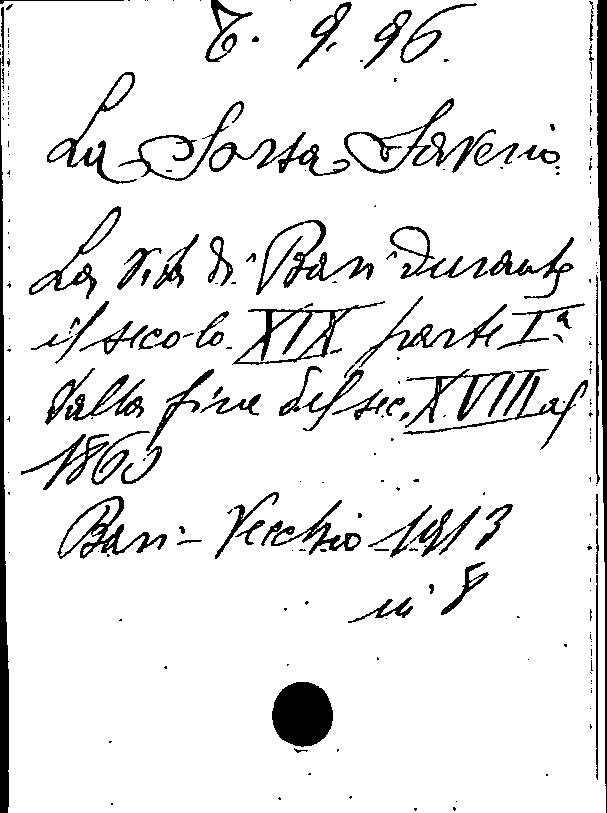 T. 9. 96.
La Sorsa Saverio
La vita di Bari durante
il secolo XIX parte Iª
dalla fine del sec. XVIII al
1860
Bari - Vecchio - 1913
in 8